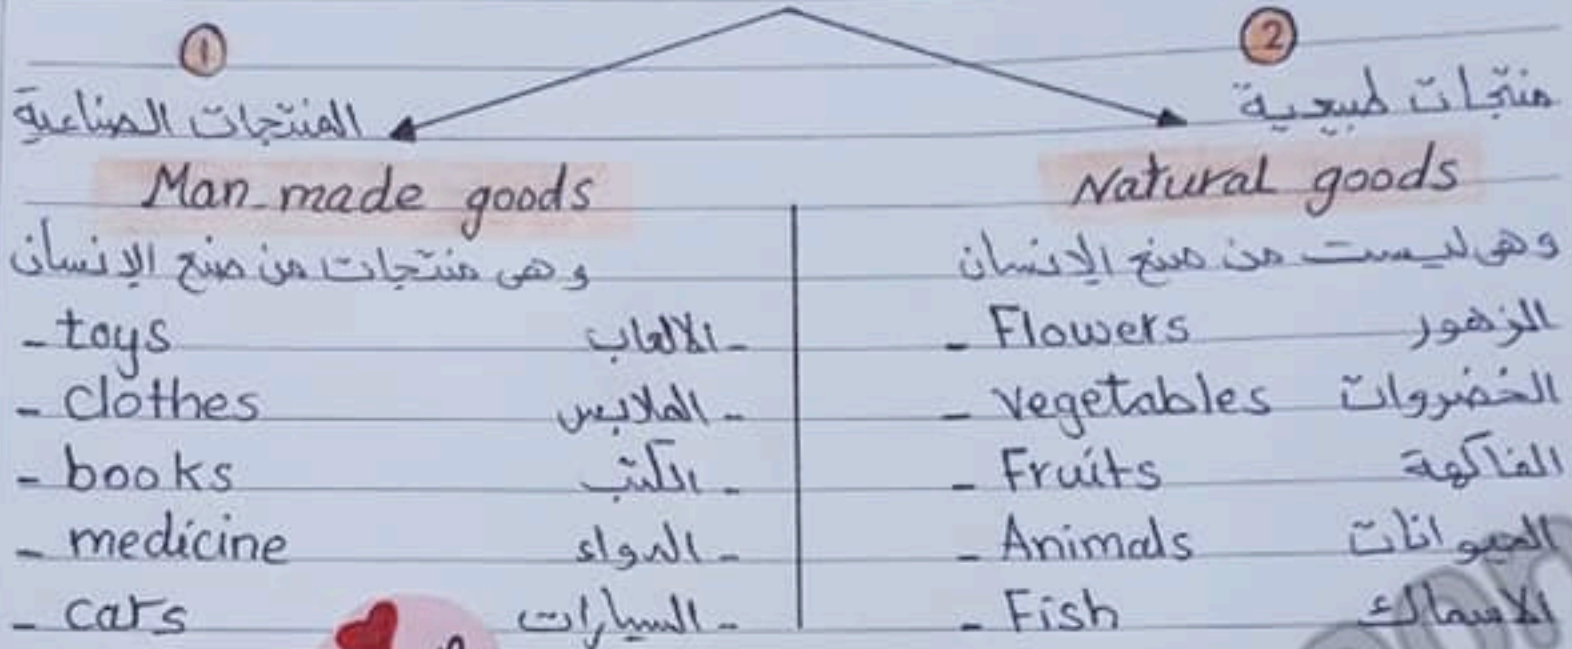 ①
المنتجات الصناعية
Man-made goods
وهى منتجات من صنع الإنسان
- toys - الألعاب
- clothes - الملابس
- books - الكتب
- medicine - الدواء
- cars - السيارات
②
منتجات طبيعية
Natural goods
وهى ليست من صنع الإنسان
- Flowers الزهور
- vegetables الخضروات
- Fruits الفاكهة
- Animals الحيوانات
- Fish الأسماك